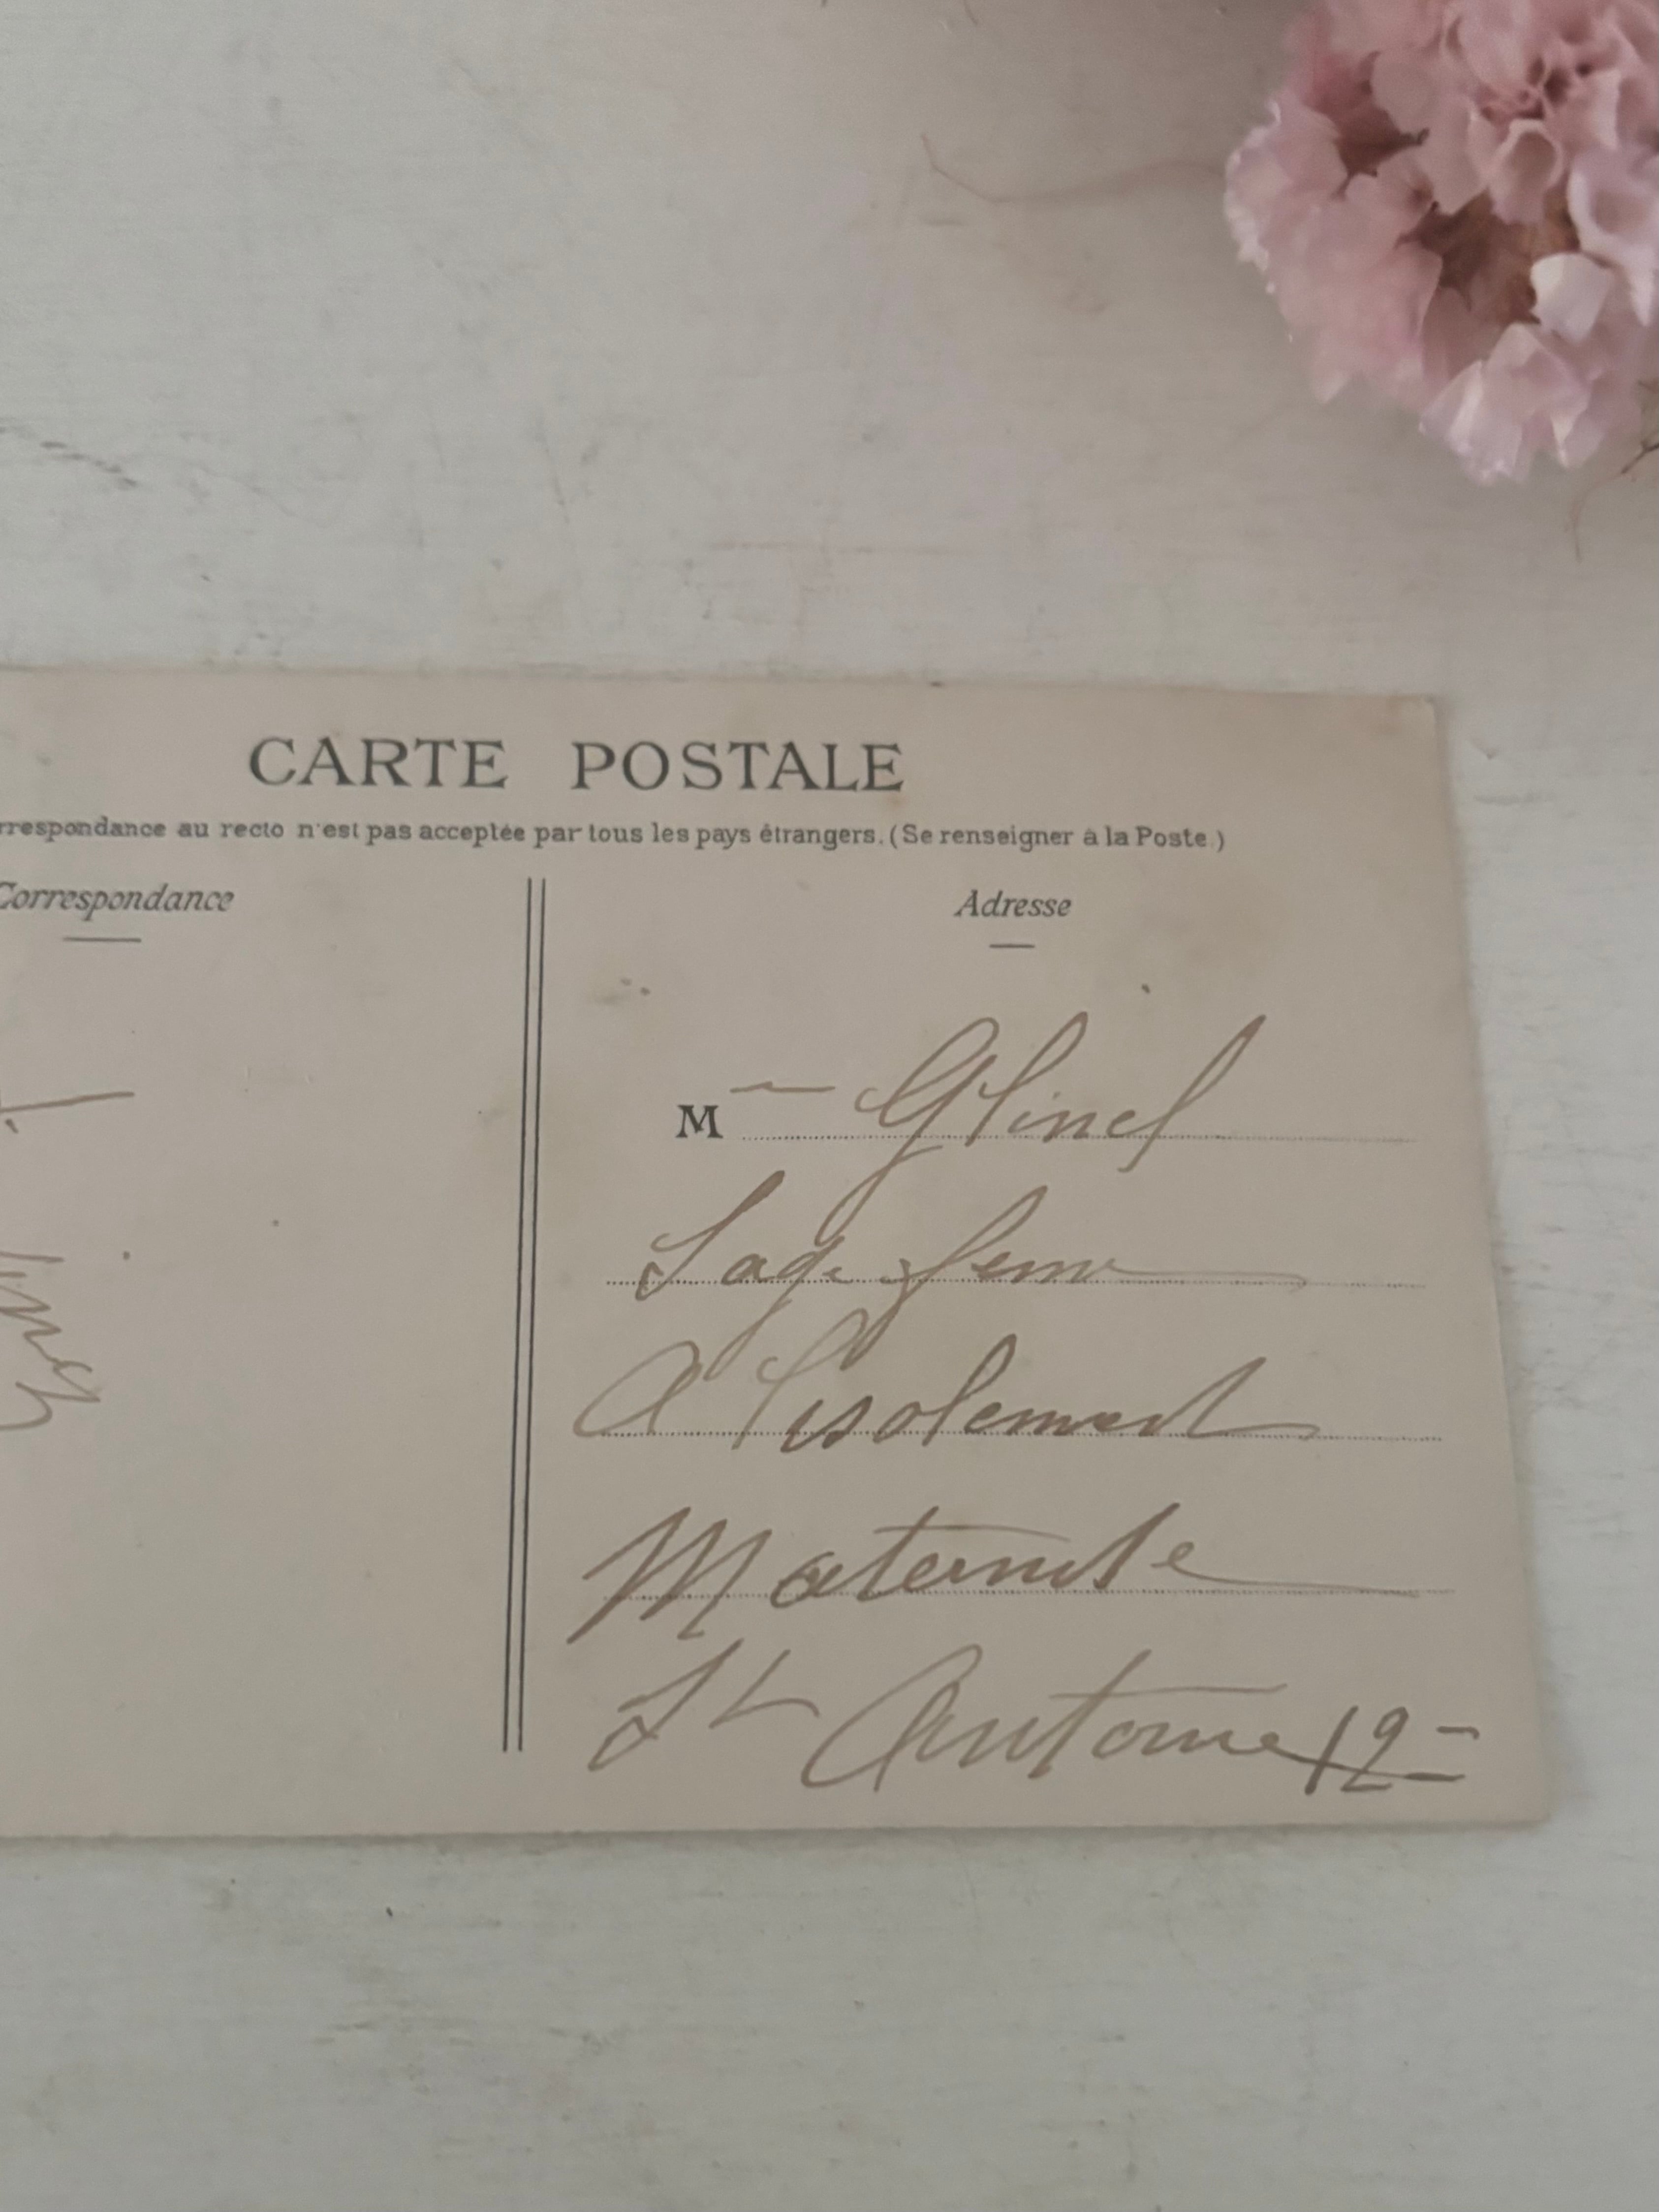 CARTE POSTALE
rrespondance au recto n'est pas acceptée par tous les pays étrangers. (Se renseigner à la Poste.)
Correspondance
Adresse
M Glinel
Sage feme
A l'isolement
Maternite
St Antoine 12